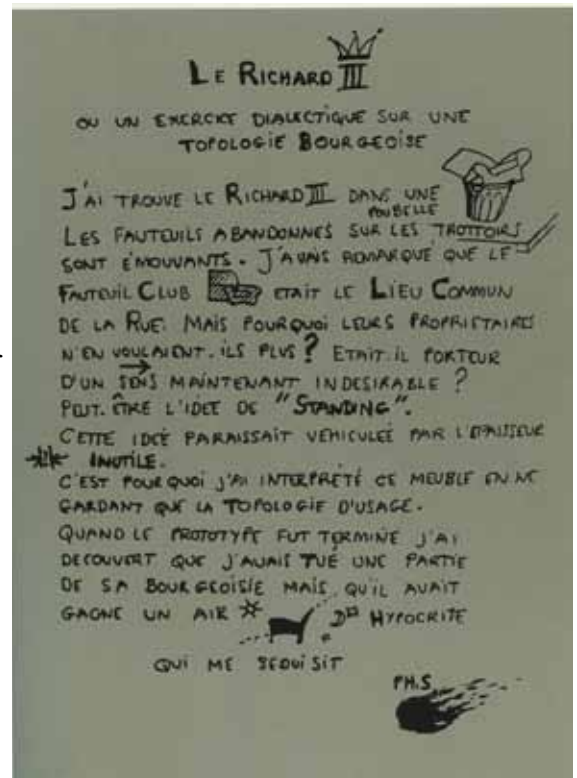 LE RICHARD III
OU UN EXERCICE DIALECTIQUE SUR UNE
TOPOLOGIE BOURGEOISE
J'AI TROUVE LE RICHARD III DANS UNE
POUBELLE
LES FAUTEUILS ABANDONNES SUR LES TROTTOIRS
SONT EMOUVANTS. J'AVAIS REMARQUÉ QUE LE
FAUTEUIL CLUB ETAIT LE LIEU COMMUN
DE LA RUE. MAIS POURQUOI LEURS PROPRIETAIRES
N'EN VOULAIENT.ILS PLUS ? ETAIT.IL PORTEUR
D'UN SENS MAINTENANT INDESIRABLE ?
PEUT.ÊTRE L'IDEE DE "STANDING".
CETTE IDEÉ PARAISSAIT VEHICULEÉ PAR L'EPAISSEUR
INUTILE.
C'EST POUR QUOI J'AI INTERPRÉTÉ CE MEUBLE EN NE
GARDANT QUE LA TOPOLOGIE D'USAGE.
QUAND LE PROTOTYPE FUT TERMINE J'AI
DECOUVERT QUE J'AVAIS TUÉ UNE PARTIE
DE SA BOURGEOISIE MAIS QU'IL AVAIT
GAGNE UN AIR D' HYPOCRITE
QUI ME SEDUISIT
PH.S